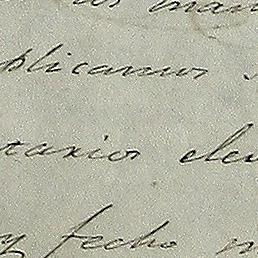 os man
plicamos
tarios elev
y fecho m